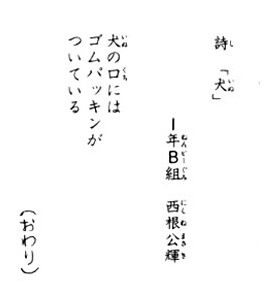 詩「犬」
1年B組 西根公輝
犬の口には
ゴムパッキンが
ついている
(おわり)